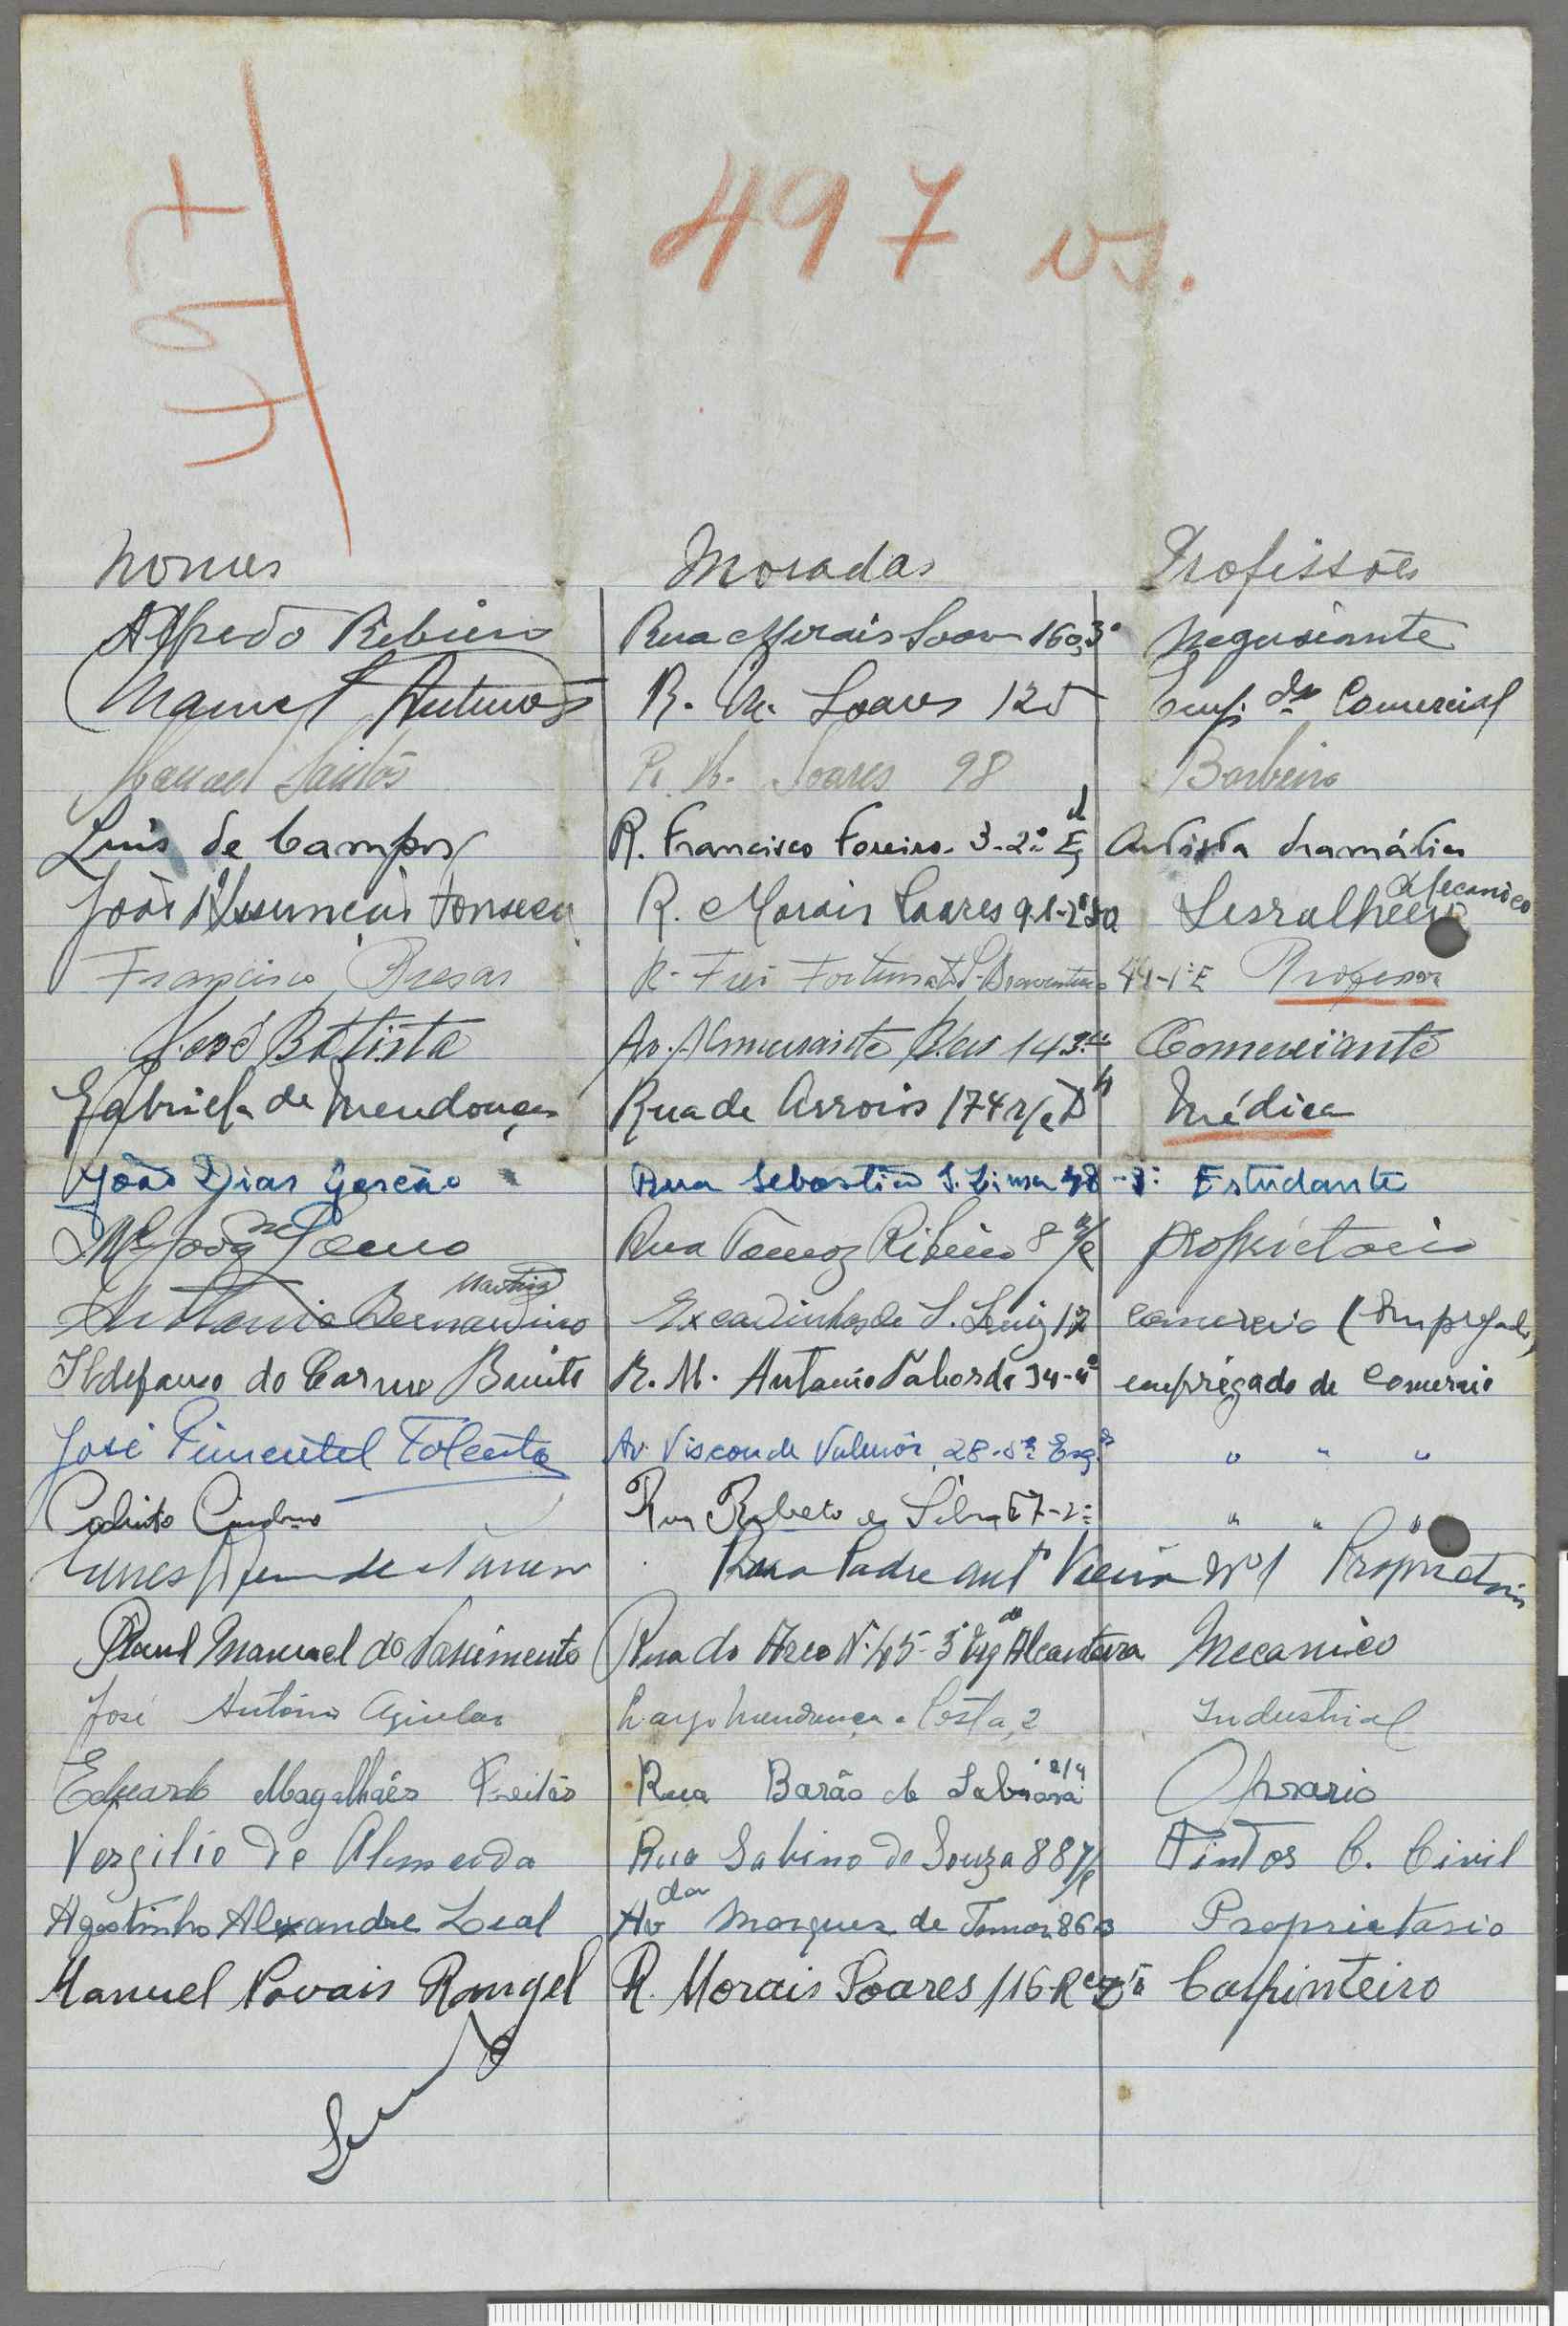 497
497 vs.
Nomes Moradas Profissões
Alfredo Ribeiro Rua Morais Soares 160,3º Negusiante
Manuel Antunes R. M. Soares 125 Comercial
Manuel Santos R. M. Soares 98 Barbeiro
Luis de Campos R. Francisco Foreiro. 3-2º E Artista dramático
João Assunção Fonseca R. Morais Soares 91-2º Serralheiro Mecanico
Francisco R. Frei Fortunato S. Boaventura 44-1º E Professor
José Batista Av. Almirante Reis 143 Comerciante
Gabriela de Mendonça Rua de Arroios 174 r/c Dº Médica
João Dias Garção Rua Sebastião S. Lima Estudante
Rua Tomaz Ribeiro 8 r/c proprietario
Antonio Bernardino Martins Escadinhas de S. Luiz 12 comercio (Empregado)
Ildefonso do Carmo R. M. Antonio Taborda 34-4º empregado de comercio
José Pimentel Av. Visconde Valmôr, 28-5º Esqº " " "
Rua Rebelo da Silva 67-2º " " "
Rua Padre Antº Vieira Nº 1 Proprietario
Raul Manuel do Nascimento Rua do Arco Nº 45-3º Esqº Alcantara Mecanico
José António Aguilar Largo Mendonça e Costa, 2 Industrial
Eduardo Magalhães Freitas Rua Barão de Sabrosa Operario
Vergilio de Almeida Rua Sabino de Souza 88 r/c Pintor C. Civil
Agostinho Alexandre Leal Av da Marquez de Tomar 86 Proprietario
Manuel Novais Rangel R. Morais Soares 116-R Carpinteiro